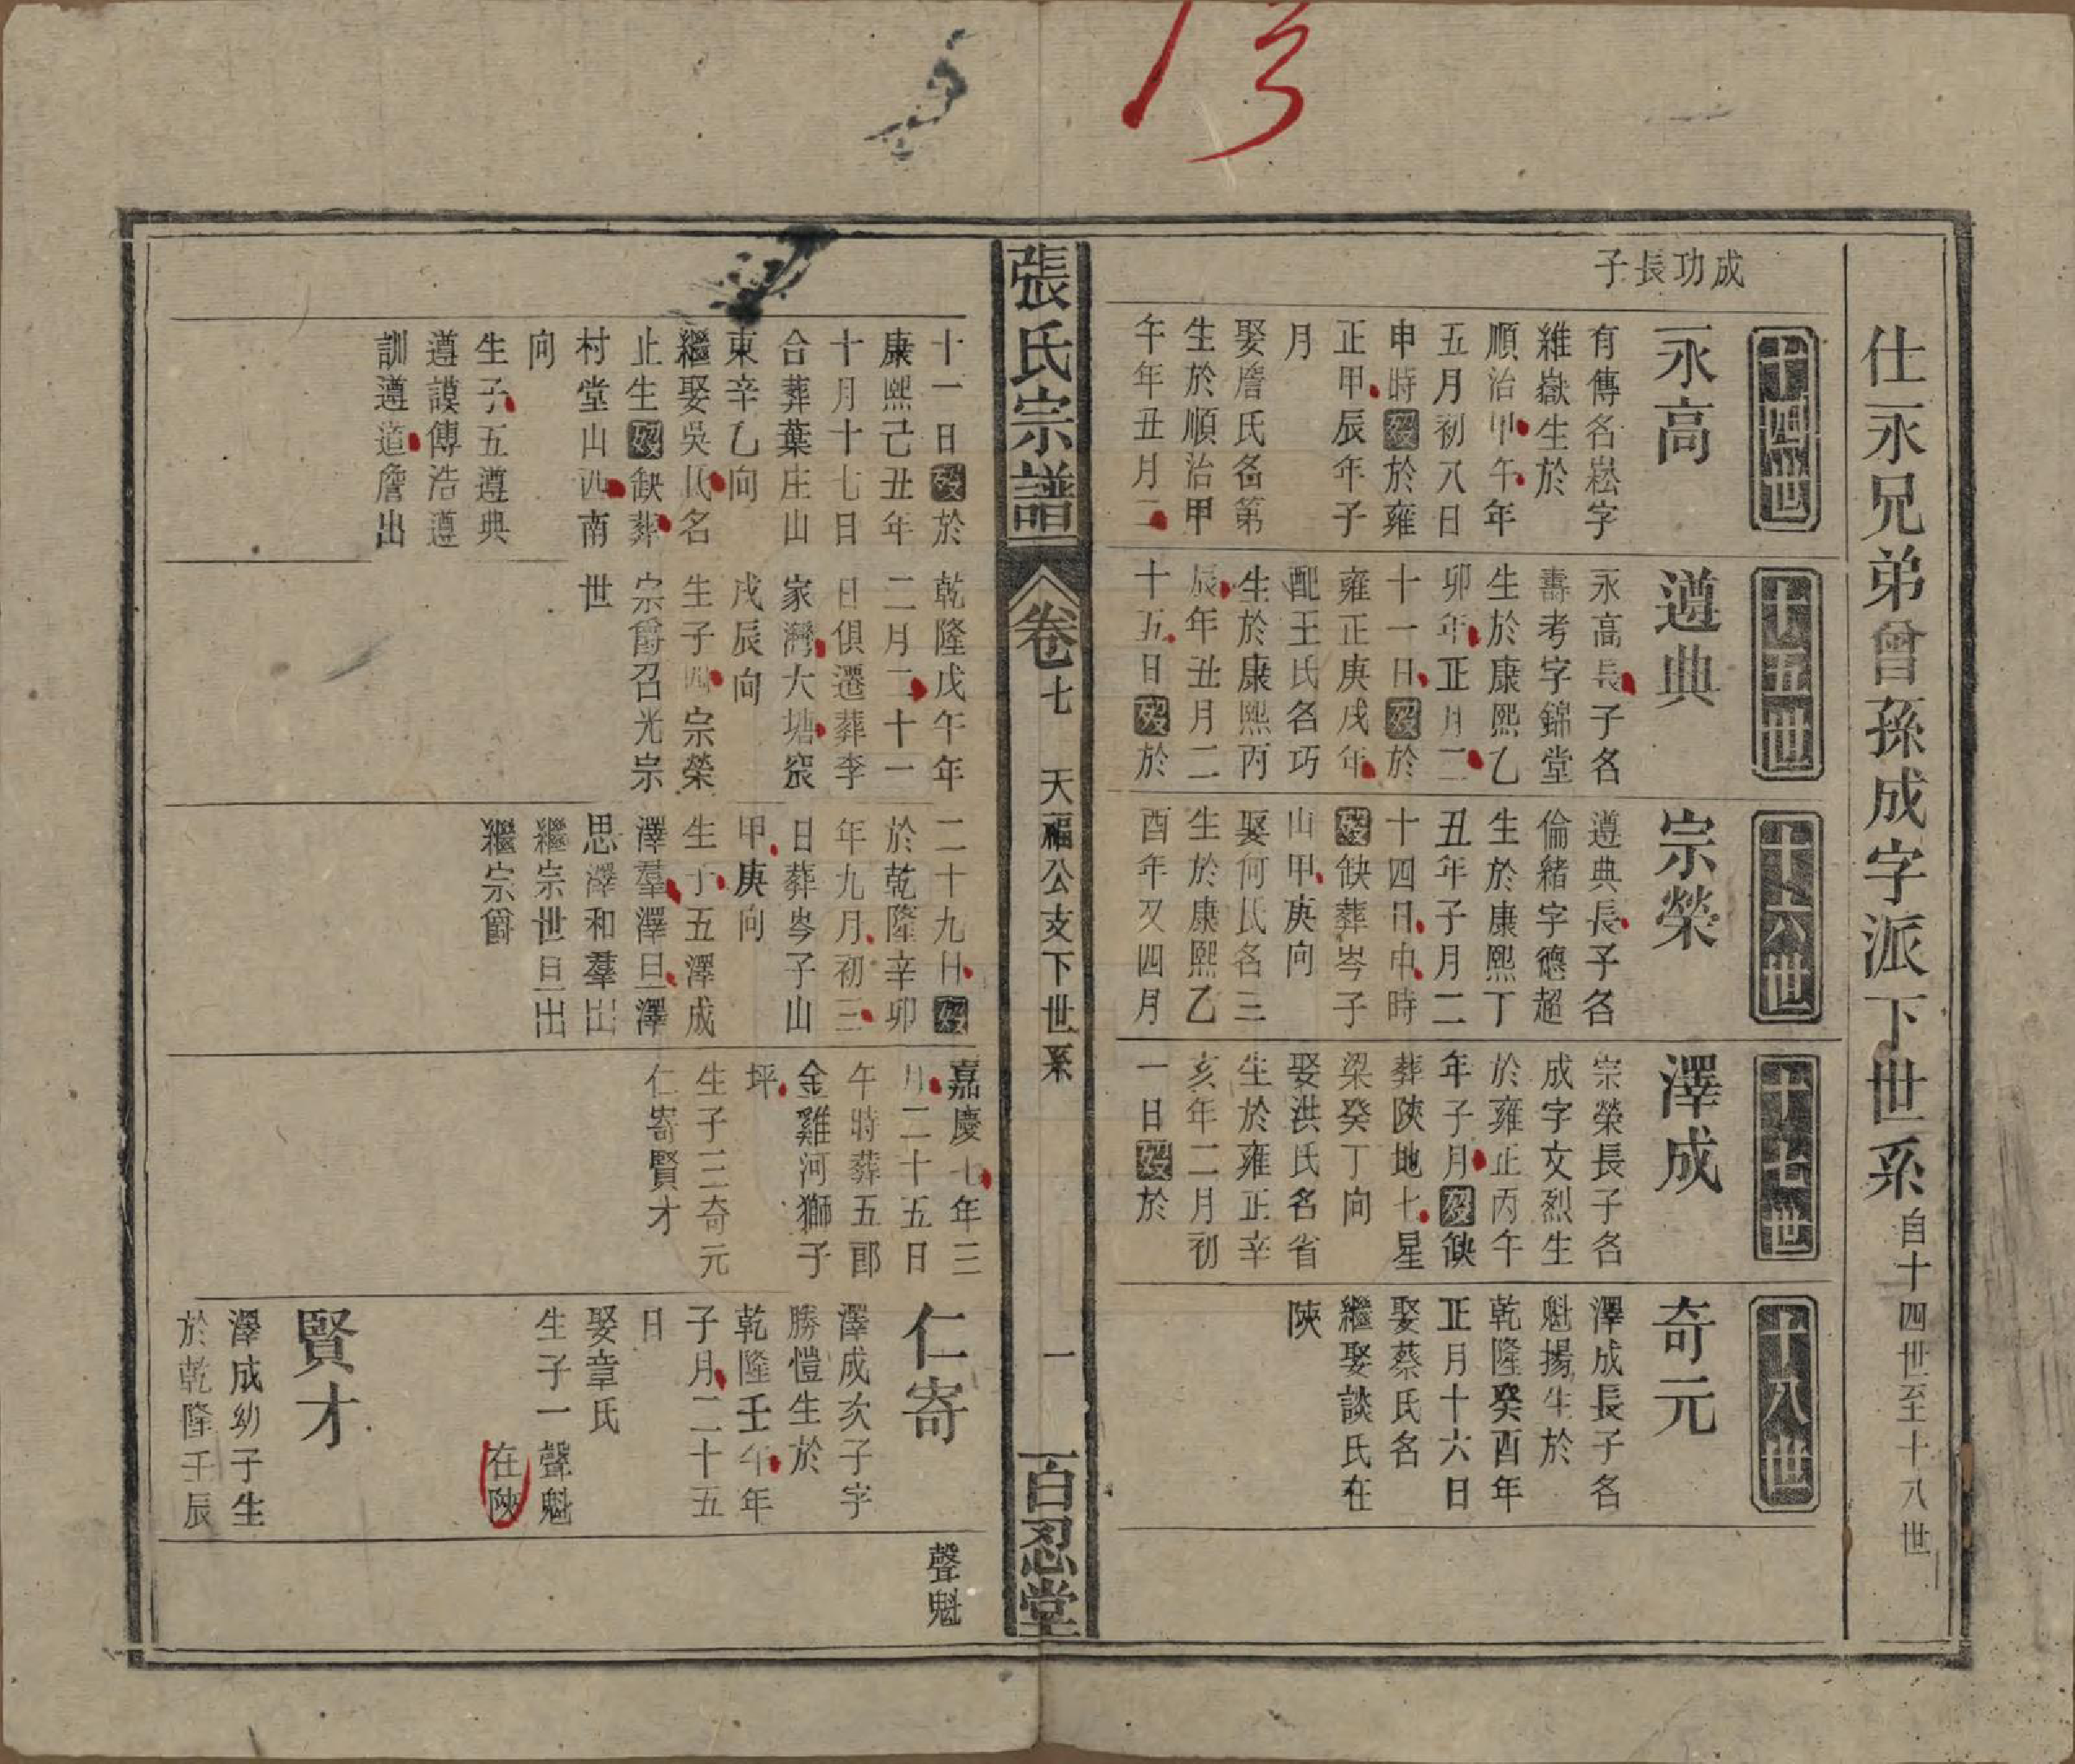 仕永兄弟曾孫成字派下世系自十四世至十八世
成功長子
十四世
永高
有傳名崧字
維嶽生於
順治甲午年
五月初八日
申時歿於雍
正甲辰年子
月
娶詹氏名第
生於順治甲
午年丑月二
十五世
遵典
永高長子名
壽考字錦堂
生於康熙乙
卯年正月二
十一日歿於
雍正庚戌年
配王氏名巧
生於康熙丙
辰年丑月二
十五日歿於
十六世
宗榮
遵典長子名
倫緒字德超
生於康熙丁
丑年子月二
十四日申時
歿缺葬岑子
山甲庚向
娶何氏名三
生於康熙乙
酉年又四月
十七世
澤成
宗榮長子名
成字文烈生
於雍正丙午
年子月歿缺
葬陝地七星
梁癸丁向
娶洪氏名省
生於雍正辛
亥年二月初
一日歿於
十八世
奇元
澤成長子名
魁揚生於
乾隆癸酉年
正月十六日
娶蔡氏名
繼娶談氏在
陝
張氏宗譜
卷七
天福公支下世系
一
百忍堂
十一日歿於
康熙己丑年
十月十七日
合葬葉庄山
東辛乙向
繼娶吳氏名
止生歿缺葬
村堂山西南
向
生子五遵典
遵謨傳浩遵
訓遵道詹出
乾隆戊午年
二月二十一
日俱遷葬李
家灣大塘窾
戌辰向
生子四宗榮
宗爵召光宗
世
二十九日歿
於乾隆辛卯
年九月初三
日葬岑子山
甲庚向
生子五澤成
澤羣澤旦澤
思澤和羣出
繼宗世旦出
繼宗爵
嘉慶七年三
月二十五日
午時葬五郎
金雞河獅子
坪
生子三奇元
仁寄賢才
仁寄
澤成次子字
勝愷生於
乾隆壬午年
子月二十五
日
娶章氏
生子一聲魁
在陝
賢才
澤成幼子生
於乾隆壬辰
聲魁